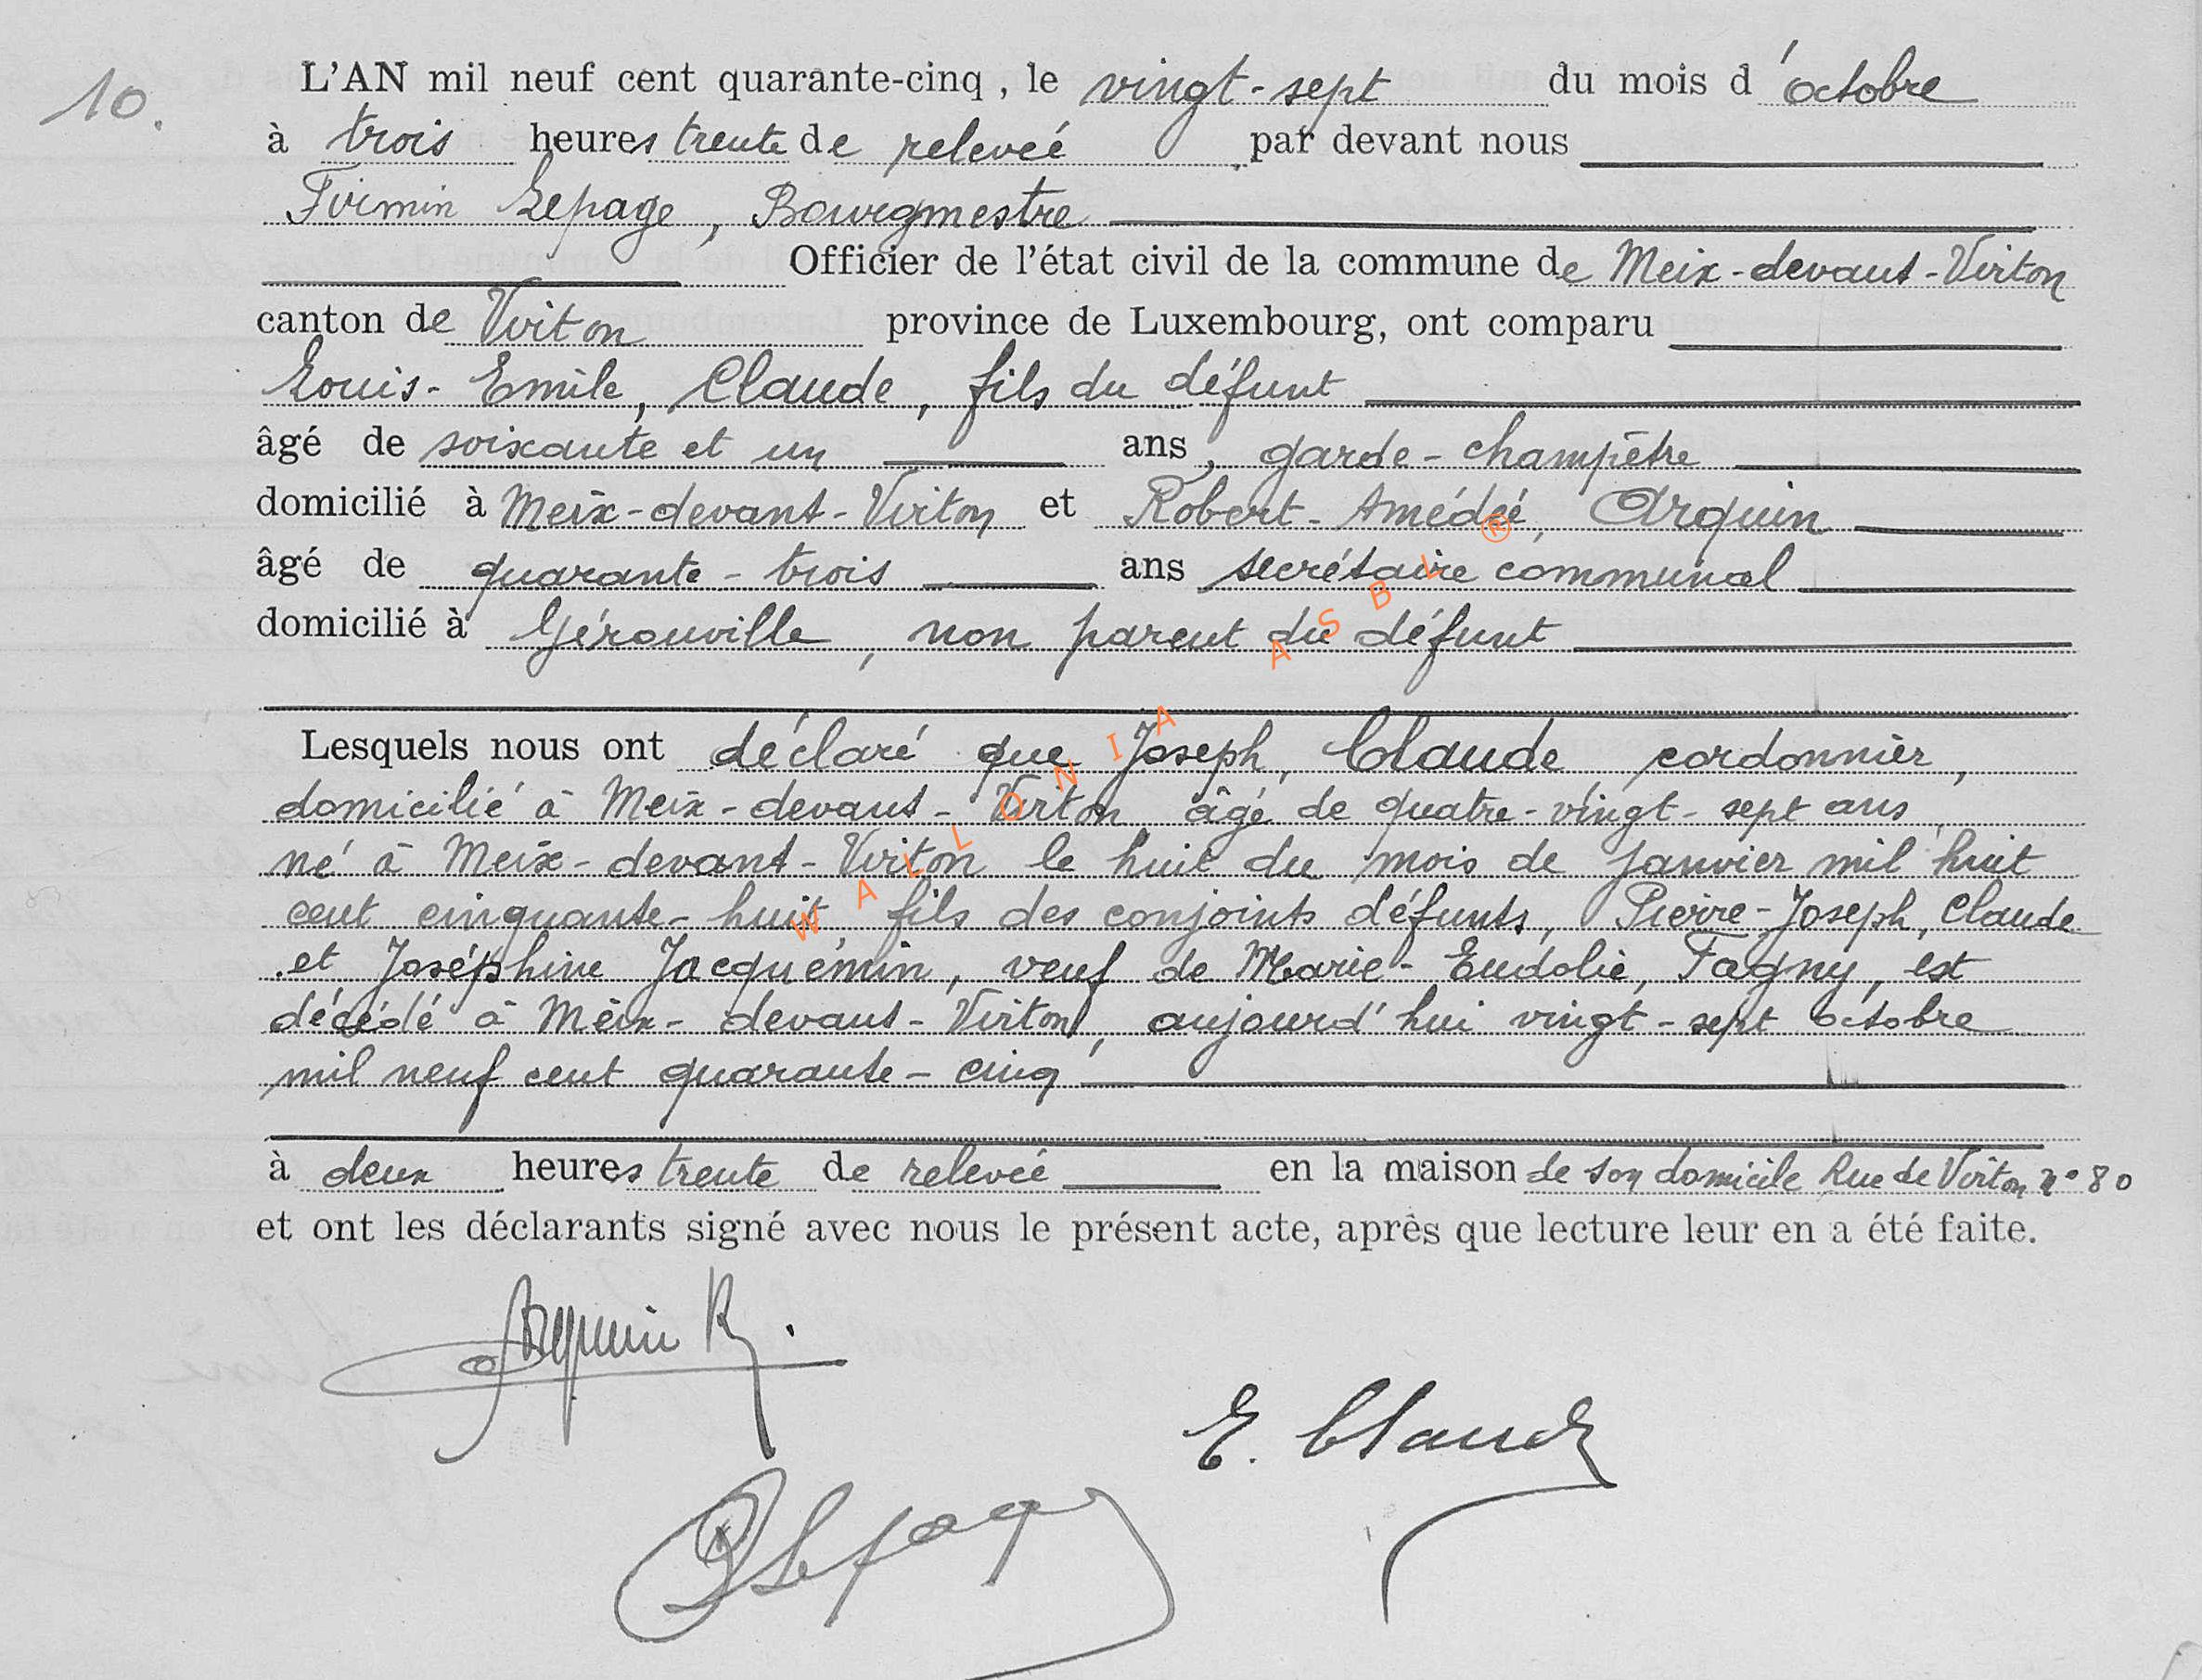 10.
L'AN mil neuf cent quarante-cinq, le vingt-sept du mois d'octobre
à trois heures trente de releveé par devant nous
Firmin Lepage, Bourgmestre
Officier de l'état civil de la commune de Meix-devant-Virton
canton de Virton province de Luxembourg, ont comparu
Louis-Emile, Claude, fils du défunt
âgé de soixante et un ans, garde-champêtre
domicilié à Meix-devant-Virton et Robert-Amédeé, Arquin
âgé de quarante-trois ans secrétaire communal
domicilié à Gérouville, non parent du défunt
Lesquels nous ont déclaré que Joseph, Claude cordonnier,
domicilié à Meix-devant-Virton âgé de quatre-vingt-sept ans,
né à Meix-devant-Virton le huit du mois de janvier mil huit
cent cinquante-huit, fils des conjoints défunts, Pierre-Joseph, Claude
et Joséphine Jacquemin, veuf de Marie-Eudolie, Fagny, est
décédé à Meix-devant-Virton, aujourd'hui vingt-sept octobre
mil neuf cent quarante-cinq
à deux heures trente de releveé en la maison de son domicile Rue de Virton n° 80
et ont les déclarants signé avec nous le présent acte, après que lecture leur en a été faite.
Arquin R.
E. Claude
Lepage
WALLONIA ASBL ®